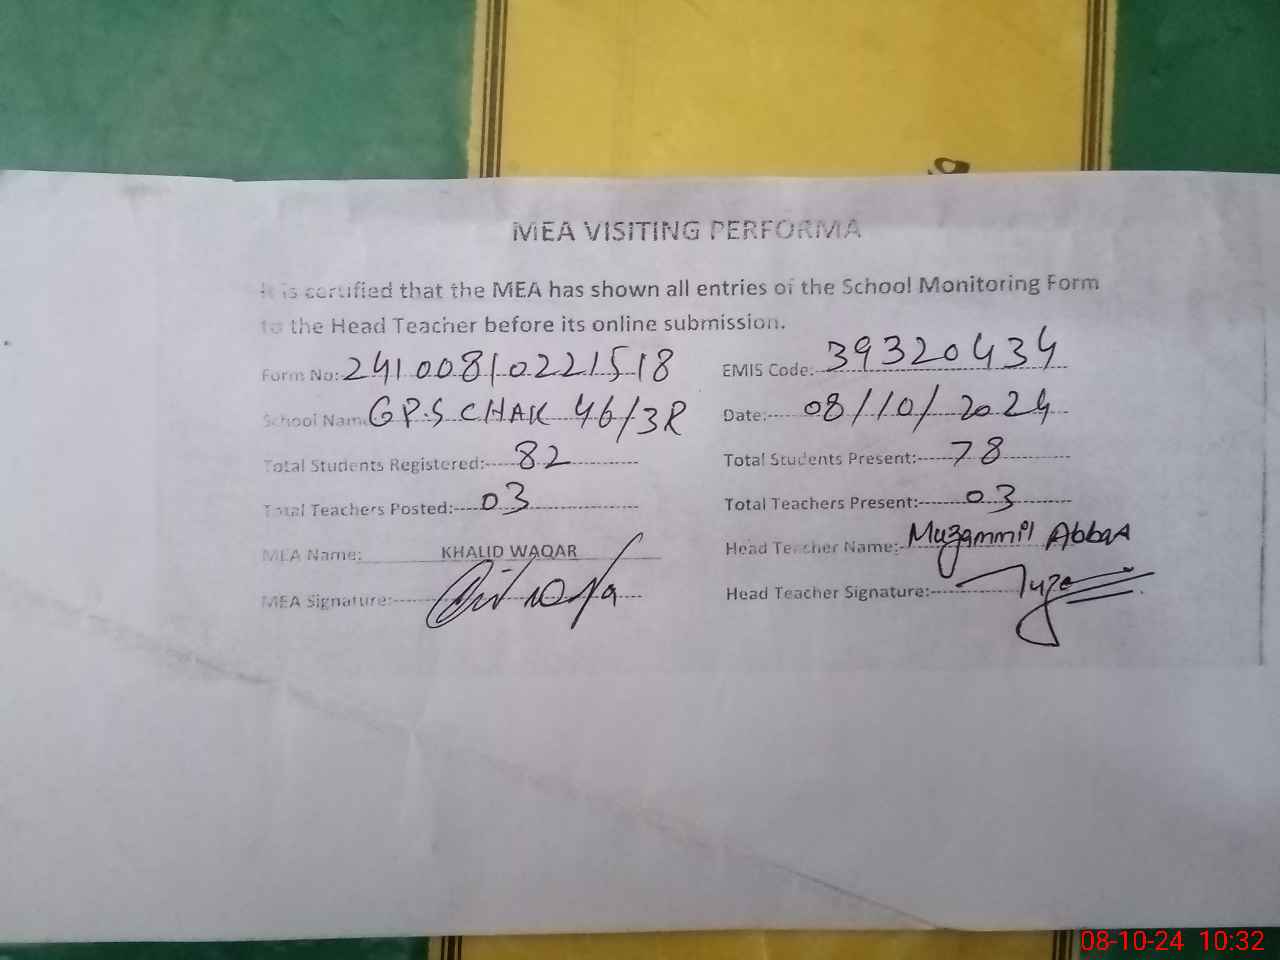 MEA VISITING PERFORMA
It is certified that the MEA has shown all entries of the School Monitoring Form
to the Head Teacher before its online submission.
Form No: 24100810221518 EMIS Code: 39320434
School Name GP.S CHAK 46/3R Date: 08/10/2024
Total Students Registered: 82 Total Students Present: 78
Total Teachers Posted: 03 Total Teachers Present: 03
MEA Name: KHALID WAQAR Head Teacher Name: Muzammil Abbas
MEA Signature: Head Teacher Signature:
08-10-24 10:32